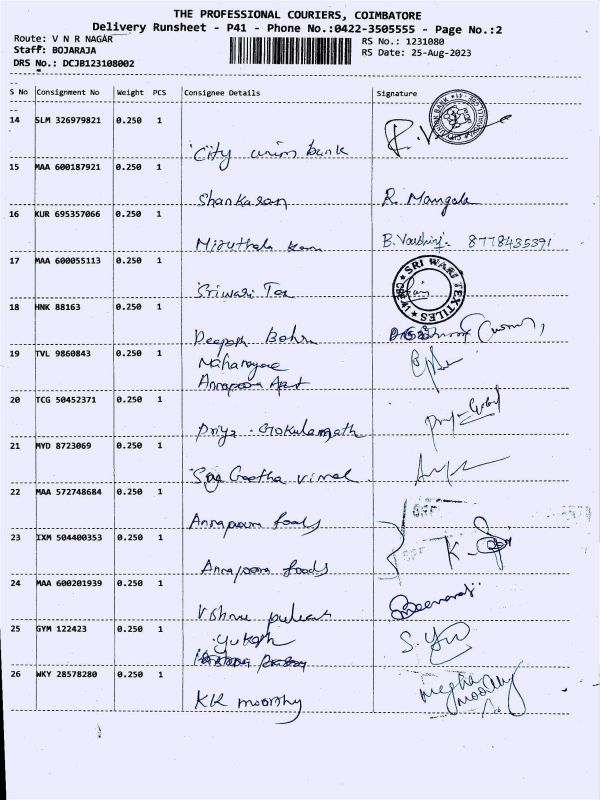 THE PROFESSIONAL COURIERS, COIMBATORE
Delivery Runsheet - P41 - Phone No.:0422-3505555 - Page No.:2
Route: V N R NAGAR RS No.: 1231080
Staff: BOJARAJA RS Date: 25-Aug-2023
DRS No.: DCJB123108002
S No Consignment No Weight PCS Consignee Details Signature
14 SLM 326979821 0.250 1
City union bank
15 MAA 600187921 0.250 1
Shankaran R. Mangala
16 KUR 695357066 0.250 1
B. 8778435391
17 MAA 600055113 0.250 1
SRI WARI TEXTILES
Sriwari Tex
18 HNK 88163 0.250 1
Deepak
19 TVL 9860843 0.250 1
Annapoorna Apt
20 TCG 50452371 0.250 1
Priya Gokulanath
21 MYD 8723069 0.250 1
Geetha vimal
22 MAA 572748684 0.250 1
Annapoorna foods
23 IXM 504400353 0.250 1
K.
Annapoorna foods
24 MAA 600201939 0.250 1
Vishnu
25 GYM 122423 0.250 1
S.
26 WKY 28578280 0.250 1
megha
moorthy
KK moorthy